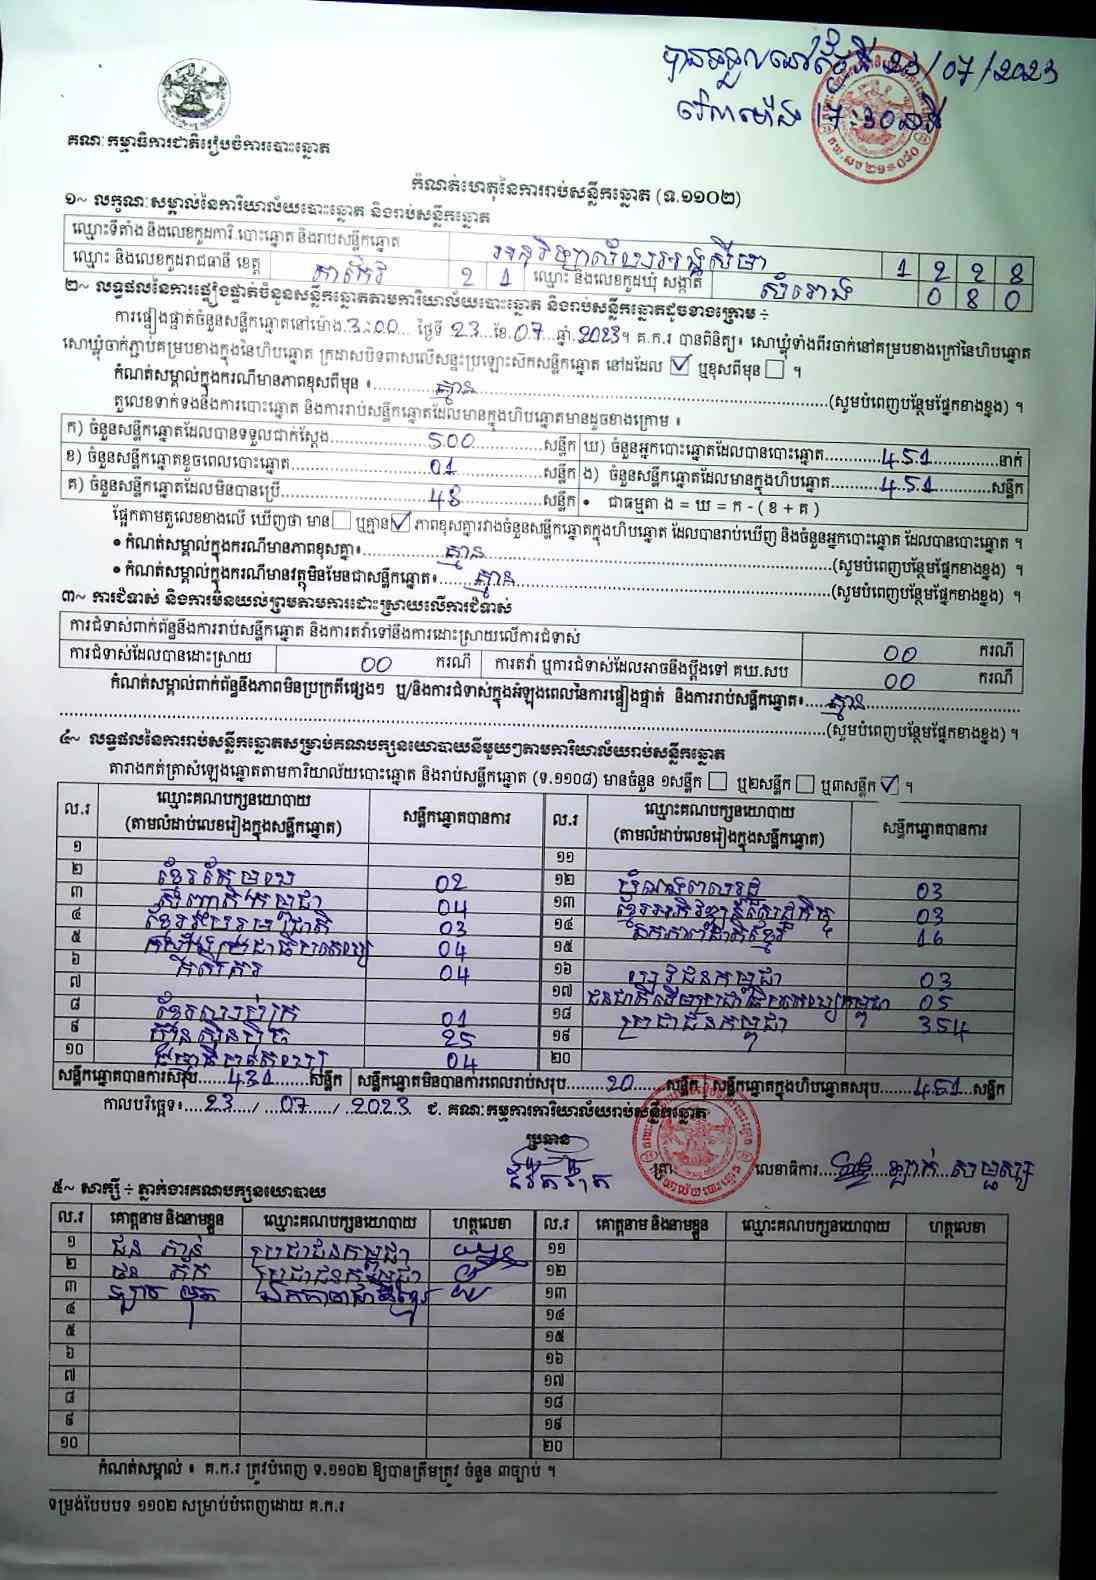 បានទទួលនៅថ្ងៃទី 23/07/2023
វេលាម៉ោង 17:30នាទី
គណៈកម្មាធិការជាតិរៀបចំការបោះឆ្នោត
កំណត់ហេតុនៃការរាប់សន្លឹកឆ្នោត (ទ.១១០២)
១~ លក្ខណៈសម្គាល់នៃការិយាល័យបោះឆ្នោត និងរាប់សន្លឹកឆ្នោត
ឈ្មោះទីតាំង និងលេខកូដការិ.បោះឆ្នោត និងរាប់សន្លឹកឆ្នោត អនុវិទ្យាល័យអង្គសីមា 1 2 2 8
ឈ្មោះ និងលេខកូដរាជធានី ខេត្ត តាកែវ 2 1 ឈ្មោះ និងលេខកូដឃុំ សង្កាត់ សំរោង 0 8 0
២~ លទ្ធផលនៃការផ្ទៀងផ្ទាត់ចំនួនសន្លឹកឆ្នោតតាមការិយាល័យបោះឆ្នោត និងរាប់សន្លឹកឆ្នោតដូចខាងក្រោម ÷
ការផ្ទៀងផ្ទាត់ចំនួនសន្លឹកឆ្នោតនៅម៉ោង.3:00... ថ្ងៃទី 23...ខែ.07...ឆ្នាំ.2023។ គ.ក.រ បានពិនិត្យ៖ សោឃ្លុំទាំងពីរចាក់នៅគម្របខាងក្រៅនៃហិបឆ្នោត
សោឃ្លុំចាក់ភ្ជាប់គម្របខាងក្នុងនៃហិបឆ្នោត ក្រដាសបិទពាសលើសន្ទះប្រឡោះស៊កសន្លឹកឆ្នោត នៅដដែល ☑ ឬខុសពីមុន ☐ ។
កំណត់សម្គាល់ក្នុងករណីមានភាពខុសពីមុន ៖ គ្មាន (សូមបំពេញបន្ថែមផ្នែកខាងខ្នង) ។
តួលេខទាក់ទងនឹងការបោះឆ្នោត និងការរាប់សន្លឹកឆ្នោតដែលមានក្នុងហិបឆ្នោតមានដូចខាងក្រោម ៖
ក) ចំនួនសន្លឹកឆ្នោតដែលបានទទួលជាក់ស្តែង 500 សន្លឹក ឃ) ចំនួនអ្នកបោះឆ្នោតដែលបានបោះឆ្នោត 451 នាក់
ខ) ចំនួនសន្លឹកឆ្នោតខូចពេលបោះឆ្នោត 01 សន្លឹក ង) ចំនួនសន្លឹកឆ្នោតដែលមានក្នុងហិបឆ្នោត 451 សន្លឹក
គ) ចំនួនសន្លឹកឆ្នោតដែលមិនបានប្រើ 48 សន្លឹក • ជាធម្មតា ង = ឃ = ក - ( ខ + គ )
ផ្អែកតាមតួលេខខាងលើ ឃើញថា មាន ☐ ឬគ្មាន ☑ ភាពខុសគ្នារវាងចំនួនសន្លឹកឆ្នោតក្នុងហិបឆ្នោត ដែលបានរាប់ឃើញ និងចំនួនអ្នកបោះឆ្នោត ដែលបានបោះឆ្នោត ។
• កំណត់សម្គាល់ក្នុងករណីមានភាពខុសគ្នា៖ គ្មាន (សូមបំពេញបន្ថែមផ្នែកខាងខ្នង) ។
• កំណត់សម្គាល់ក្នុងករណីមានវត្ថុមិនមែនជាសន្លឹកឆ្នោត៖ គ្មាន (សូមបំពេញបន្ថែមផ្នែកខាងខ្នង) ។
៣~ ការជំទាស់ និងការមិនយល់ព្រមតាមការដោះស្រាយលើការជំទាស់
ការជំទាស់ពាក់ព័ន្ធនឹងការរាប់សន្លឹកឆ្នោត និងការតវ៉ាទៅនឹងការដោះស្រាយលើការជំទាស់ 00 ករណី
ការជំទាស់ដែលបានដោះស្រាយ 00 ករណី ការតវ៉ា ឬការជំទាស់ដែលអាចនឹងប្តឹងទៅ គឃ.សប 00 ករណី
កំណត់សម្គាល់ពាក់ព័ន្ធនឹងភាពមិនប្រក្រតីផ្សេងៗ ឬ/និងការជំទាស់ក្នុងអំឡុងពេលនៃការផ្ទៀងផ្ទាត់ និងការរាប់សន្លឹកឆ្នោត៖ គ្មាន
(សូមបំពេញបន្ថែមផ្នែកខាងខ្នង) ។
៤~ លទ្ធផលនៃការរាប់សន្លឹកឆ្នោតសម្រាប់គណបក្សនយោបាយនីមួយៗតាមការិយាល័យរាប់សន្លឹកឆ្នោត
តារាងកត់ត្រាសំឡេងឆ្នោតតាមការិយាល័យបោះឆ្នោត និងរាប់សន្លឹកឆ្នោត (ទ.១១០៨) មានចំនួន ១សន្លឹក ☐ ឬ២សន្លឹក ☐ ឬ៣សន្លឹក ☑ ។
ល.រ ឈ្មោះគណបក្សនយោបាយ (តាមលំដាប់លេខរៀងក្នុងសន្លឹកឆ្នោត) សន្លឹកឆ្នោតបានការ ល.រ ឈ្មោះគណបក្សនយោបាយ (តាមលំដាប់លេខរៀងក្នុងសន្លឹកឆ្នោត) សន្លឹកឆ្នោតបានការ
១ ១១
២ ខ្មែរតែមួយ 02 ១២ បំណងពលរដ្ឋ 03
៣ សញ្ជាតិកម្ពុជា 04 ១៣ ខ្មែរអភិវឌ្ឍន៍សេដ្ឋកិច្ច 03
៤ ខ្មែររួបរួមជាតិ 03 ១៤ ឯកភាពជាតិខ្មែរ 16
៥ សំបុកឃ្មុំប្រជាធិបតេយ្យ 04 ១៥
៦ កសិករ 04 ១៦ យុវជនកម្ពុជា 03
៧ ១៧ ជនជាតិដើមប្រជាធិបតេយ្យកម្ពុជា 05
៨ ខ្មែរឈប់ក្រ 01 ១៨ ប្រជាជនកម្ពុជា 354
៩ ហ៊្វុនស៊ិនប៉ិច 25 ១៩
១០ ធម្មាធិបតេយ្យ 04 ២០
សន្លឹកឆ្នោតបានការសរុប 431 សន្លឹក សន្លឹកឆ្នោតមិនបានការពេលរាប់សរុប 20 សន្លឹក សន្លឹកឆ្នោតក្នុងហិបឆ្នោតសរុប 451 សន្លឹក
កាលបរិច្ឆេទ៖ 23 / 07 / 2023 ជ. គណៈកម្មការការិយាល័យរាប់សន្លឹកឆ្នោត
ប្រធាន លេខាធិការ
៥~ សាក្សី ÷ ភ្នាក់ងារគណបក្សនយោបាយ
ល.រ គោត្តនាម និងនាមខ្លួន ឈ្មោះគណបក្សនយោបាយ ហត្ថលេខា ល.រ គោត្តនាម និងនាមខ្លួន ឈ្មោះគណបក្សនយោបាយ ហត្ថលេខា
១ ប្រជាជនកម្ពុជា ១១
២ ប្រជាជនកម្ពុជា ១២
៣ ឯកភាពជាតិខ្មែរ ១៣
៤ ១៤
៥ ១៥
៦ ១៦
៧ ១៧
៨ ១៨
៩ ១៩
១០ ២០
កំណត់សម្គាល់ ៖ គ.ក.រ ត្រូវបំពេញ ទ.១១០២ ឱ្យបានត្រឹមត្រូវ ចំនួន ៣ច្បាប់ ។
ទម្រង់បែបបទ ១១០២ សម្រាប់បំពេញដោយ គ.ក.រ